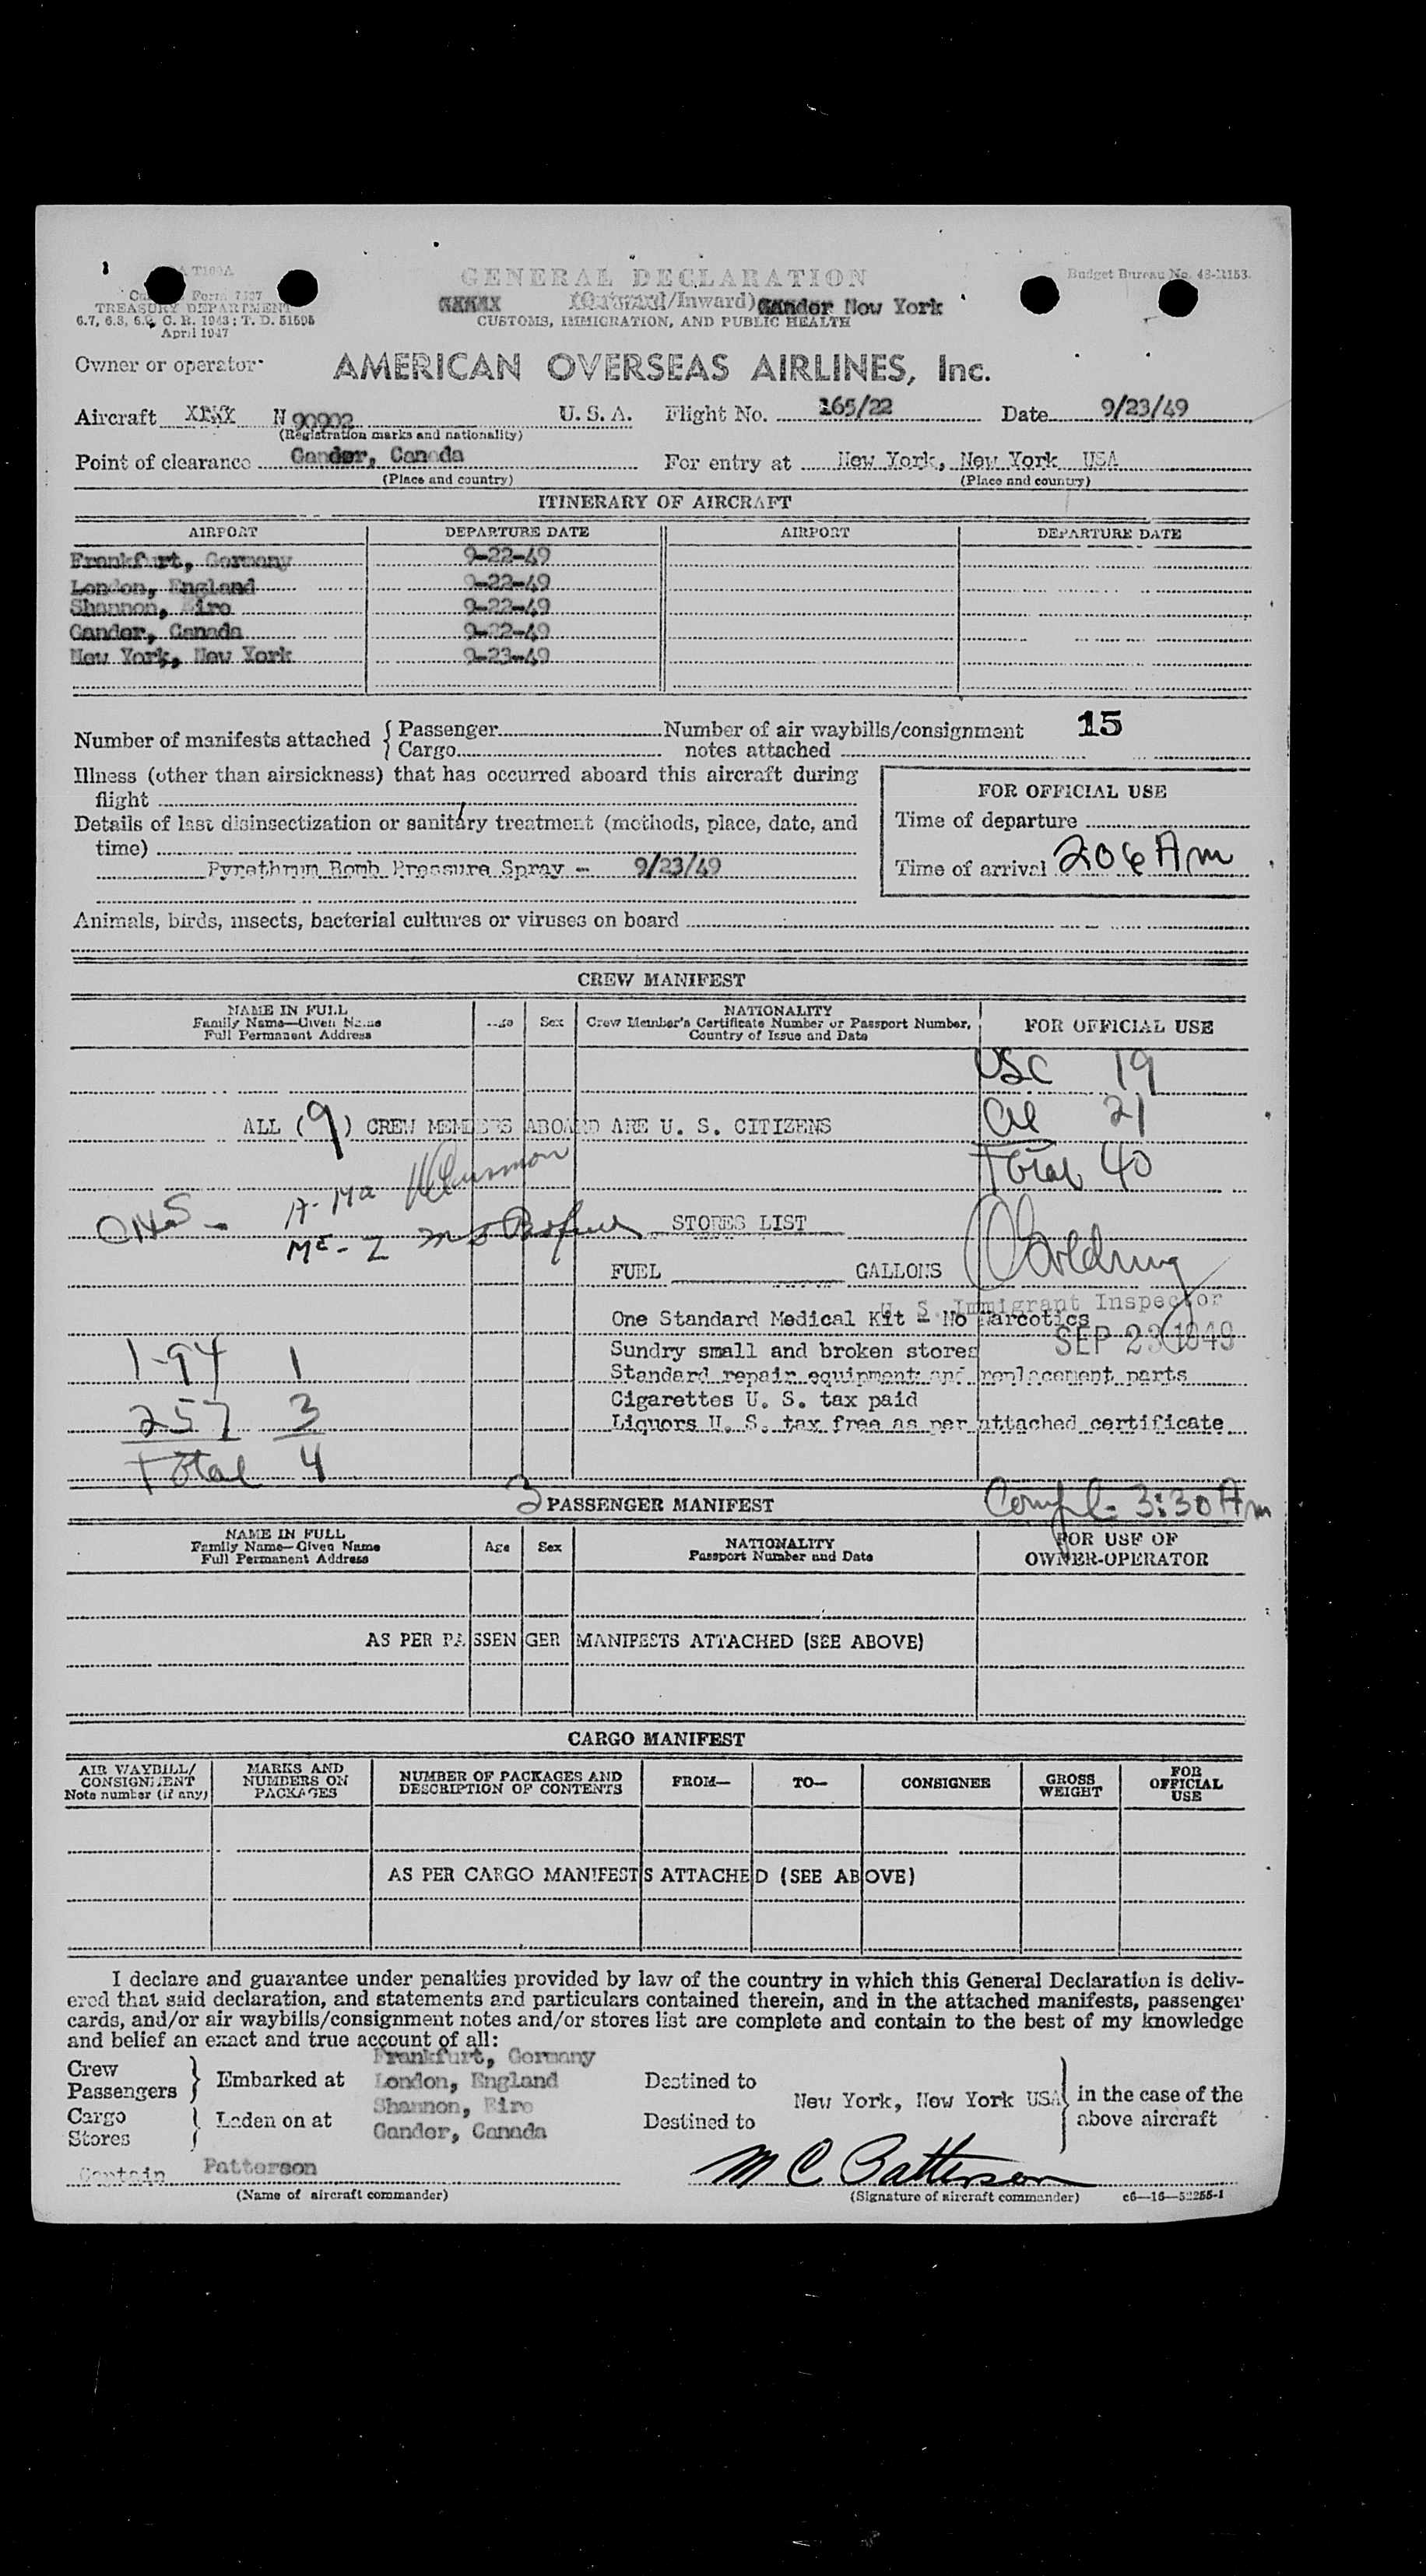 GENERAL DECLARATION
Budget Bureau No. 48-R1153.
Form 7507
(Outward/Inward) Gander New York
TREASURY DEPARTMENT
CUSTOMS, IMMIGRATION, AND PUBLIC HEALTH
C. R. 1943; T. D. 51595
April 1947
Owner or operator
AMERICAN OVERSEAS AIRLINES, Inc.
Aircraft N 90902 U. S. A. Flight No. 165/22 Date 9/23/49
(Registration marks and nationality)
Point of clearance Gander, Canada For entry at New York, New York USA
(Place and country) (Place and country)
ITINERARY OF AIRCRAFT
AIRPORT DEPARTURE DATE AIRPORT DEPARTURE DATE
Frankfurt, Germany 9-22-49
London, England 9-22-49
Shannon, Eire 9-22-49
Gander, Canada 9-22-49
New York, New York 9-23-49
Number of manifests attached { Passenger Number of air waybills/consignment 15
Cargo notes attached
Illness (other than airsickness) that has occurred aboard this aircraft during
flight
FOR OFFICIAL USE
Details of last disinsectization or sanitary treatment (methods, place, date, and
time)
Time of departure
Pyrethrum Bomb Pressure Spray - 9/23/49
Time of arrival 206 Am
Animals, birds, insects, bacterial cultures or viruses on board
CREW MANIFEST
NAME IN FULL
Family Name—Given Name
Full Permanent Address
Age Sex
NATIONALITY
Crew Member's Certificate Number or Passport Number,
Country of Issue and Date
FOR OFFICIAL USE
USC 19
ALL (9) CREW MEMBERS ABOARD ARE U. S. CITIZENS
21
Total 40
STORES LIST
FUEL GALLONS
U. S. Immigrant Inspector
One Standard Medical Kit - No Narcotics
SEP 23 1949
Sundry small and broken stores
1-94 1
Standard repair equipment and replacement parts
Cigarettes U. S. tax paid
257 3
Liquors U. S. tax free as per attached certificate
Total 4
3 PASSENGER MANIFEST
Compl. 3:30 Am
NAME IN FULL
Family Name—Given Name
Full Permanent Address
Age Sex
NATIONALITY
Passport Number and Date
FOR USE OF
OWNER-OPERATOR
AS PER PASSENGER MANIFESTS ATTACHED (SEE ABOVE)
CARGO MANIFEST
AIR WAYBILL/
CONSIGNMENT
Note number (if any)
MARKS AND
NUMBERS ON
PACKAGES
NUMBER OF PACKAGES AND
DESCRIPTION OF CONTENTS
FROM—
TO—
CONSIGNEE
GROSS
WEIGHT
FOR
OFFICIAL
USE
AS PER CARGO MANIFESTS ATTACHED (SEE ABOVE)
I declare and guarantee under penalties provided by law of the country in which this General Declaration is deliv-
ered that said declaration, and statements and particulars contained therein, and in the attached manifests, passenger
cards, and/or air waybills/consignment notes and/or stores list are complete and contain to the best of my knowledge
and belief an exact and true account of all:
Crew
Passengers } Embarked at
Cargo
Stores } Laden on at
Frankfurt, Germany
London, England
Shannon, Eire
Gander, Canada
Destined to
Destined to
New York, New York USA
in the case of the
above aircraft
Captain Patterson
M C Patterson
(Name of aircraft commander) (Signature of aircraft commander) c6—16—52255-1